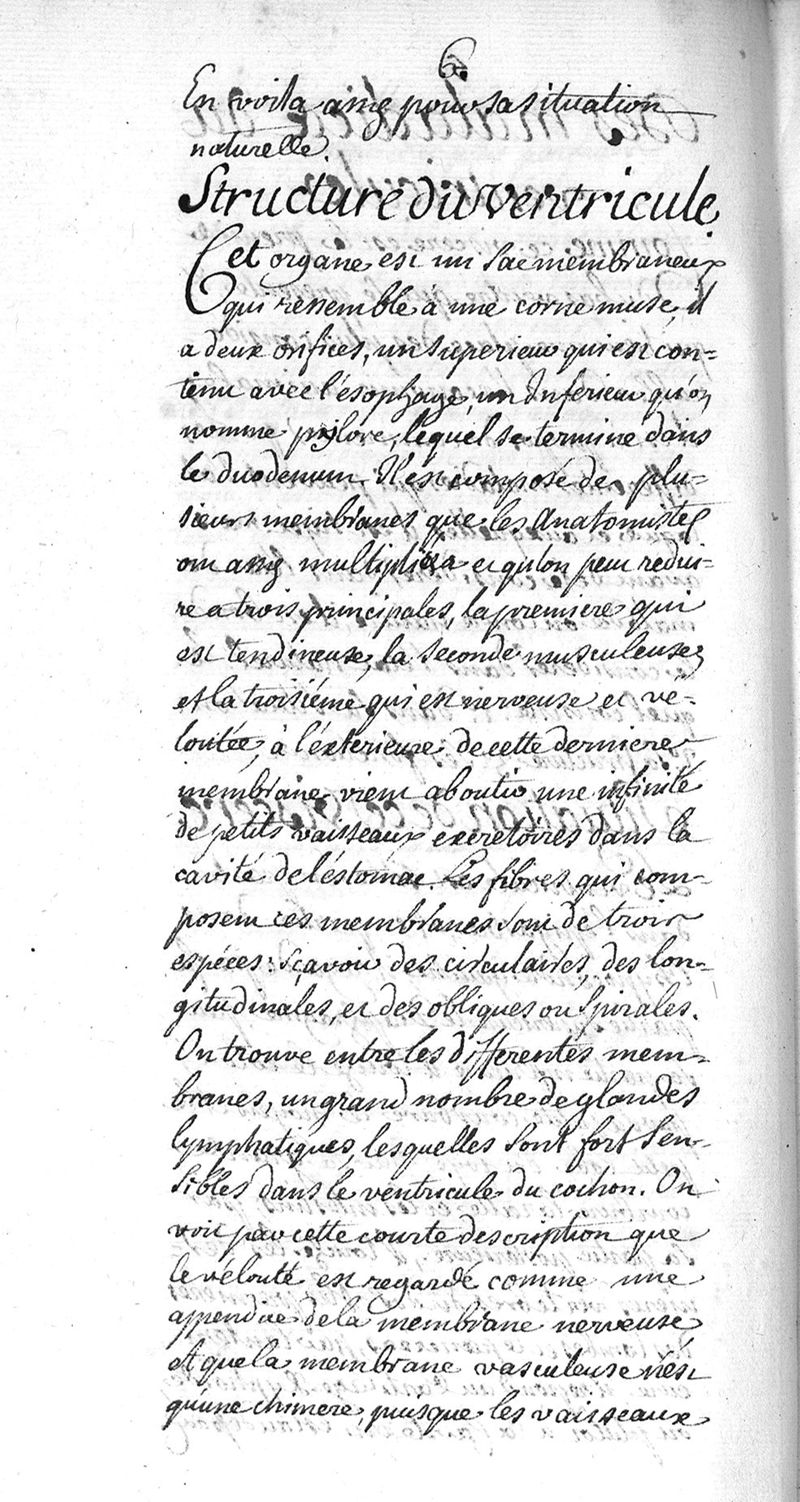 6.
En voila assez pour sa situation
naturelle.
Structure du ventricule.
Cet organe est un sac membraneux
qui ressemble à une corne muse, il
a deux orifices, un superieur qui est con=
tenu avec l'ésophage, un Inferieur qu'on
nomme pylore, lequel se termine dans
le duodenum. Il est composé de plu=
sieurs membranes que les Anatomistes
ont assez multiplié et qu'on peut redui=
re a trois principales, la premiere qui
est tendineuse, la seconde musculeuse,
et la troisiéme qui est nerveuse et vé=
loutée, à l'éxterieure de cette derniere
membrane vient aboutir une infinité
de petits vaisseaux excretoires dans la
cavité de l'éstomac. Les fibres qui com=
posent ces membranes sont de trois
espéces: sçavoir des circulaires, des lon=
gitudinales, et des obliques ou spirales.
On trouve entre les differentes mem=
branes, un grand nombre de glandes
lymphatiques, lesquelles sont fort sen=
sibles dans le ventricule du cochon. On
voit par cette courte description que
le vélouté est regardé comme une
appendice de la membrane nerveuse,
et que la membrane vasculeuse n'est
qu'une chimere, puisque les vaisseaux